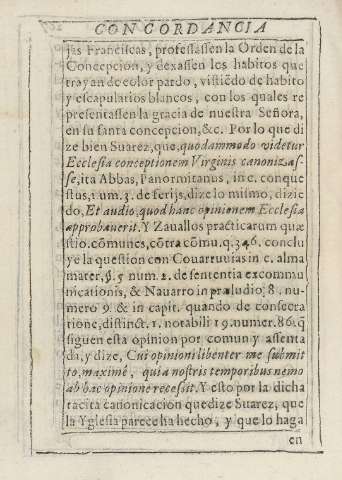 CONCORDANCIA
jas Franciscas, professassen la Orden de la
Concepcion, y dexassen los habitos que
trayan de color pardo, vistiẽdo de habito
y escapularios blancos, con los quales re
presentassen la gracia de nuestra Señora,
en su santa concepcion, &c. Por lo que di
ze bien Suarez, que, quodammodo videtur
Ecclesia conceptionem Virginis canonizas-
se, ita Abbas, Panormitanus, in c. conque
stus, 1 um. 3. de ferijs, dize lo mismo, dizië
do, Et audio, quod hanc opinionem Ecclesia
approbauerit. Y Zauallos practicarum quæ
stio. cõmunes, cõtra cõmu. q. 346. conclu
ye la question con Couarruuias in c. alma
mater, p. 5 num. 2. de sententia excommu
nicationis, & Nauarro in præludio; 8. nu-
mero 9. & in capit. quando de consecra
tione, distinct. 1. notabili 19. numer. 86. q̃
siguen esta opinion por comun y assenta
da, y dize, Cui opinioni libenter me submit
to, maximè, quia nostris temporibus nemo
ab hac opinione recessit. Y esto por la dicha
tacita canonicacion que dize Suarez, que
la Yglesia parece ha hecho, y que lo haga
en